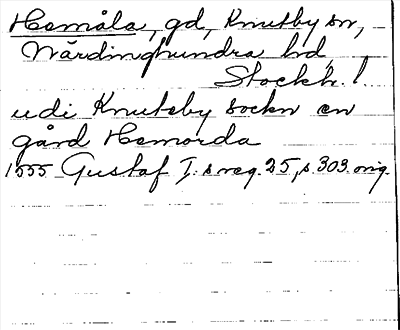 Hemåla, gd, Knutby sn,
Närdinghundra hd,
Stockh. l.
udi Knutsby sockn en
gård Hemorda
1555 Gustaf I:s reg. 25, s. 303. orig.